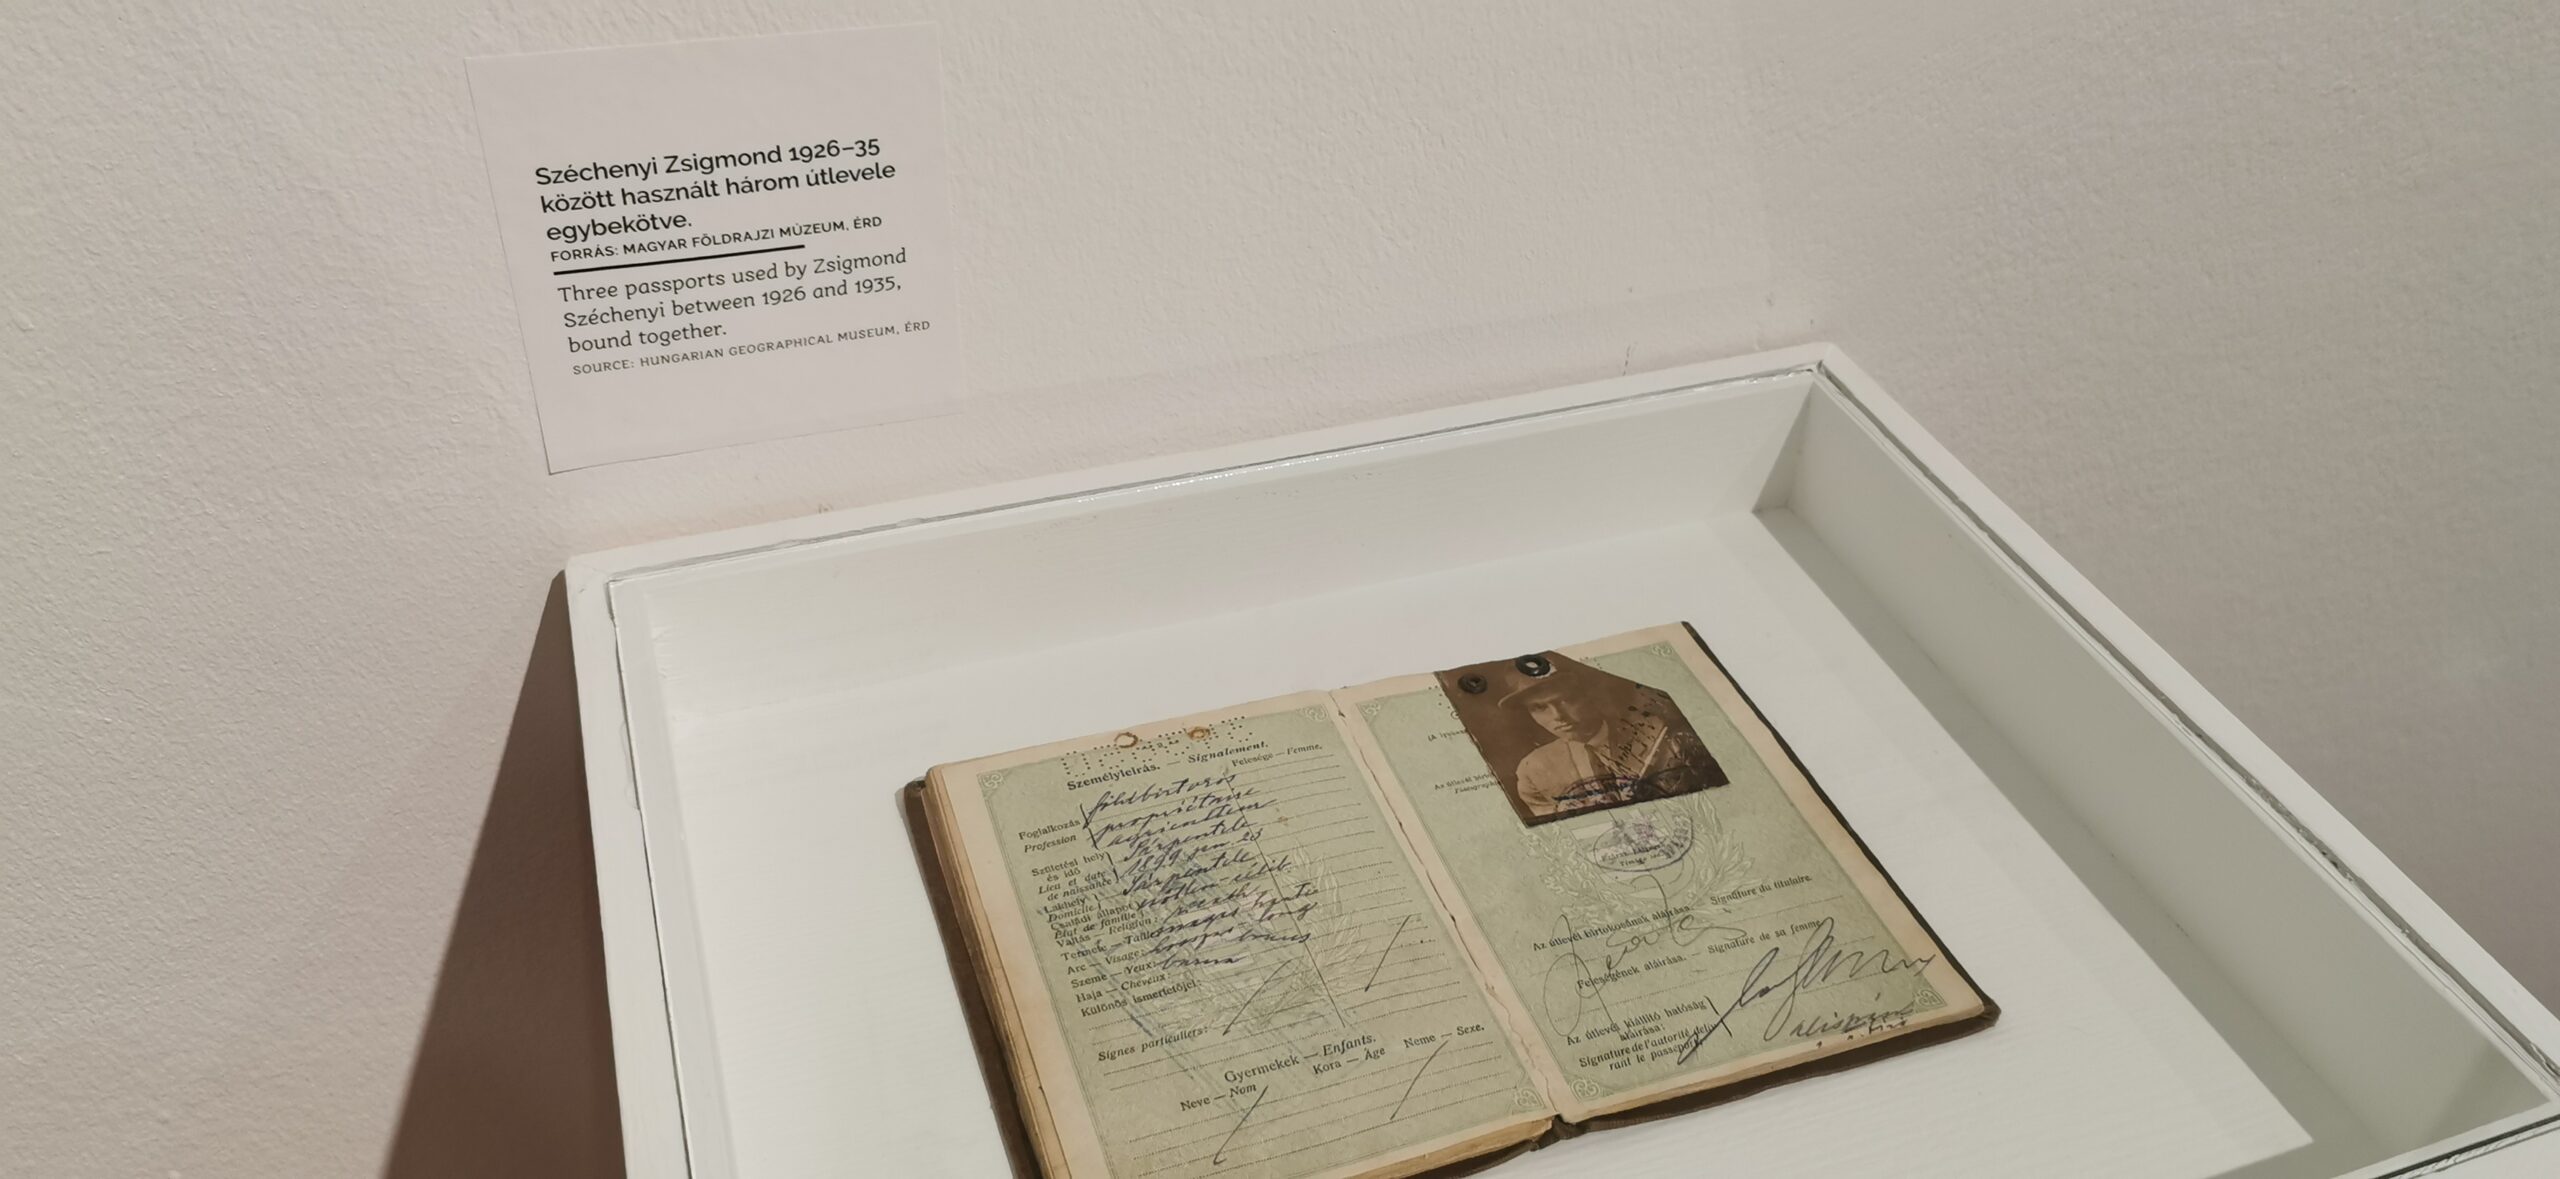 Széchenyi Zsigmond 1926–35
között használt három útlevele
egybekötve.
FORRÁS: MAGYAR FÖLDRAJZI MÚZEUM, ÉRD
Three passports used by Zsigmond
Széchenyi between 1926 and 1935,
bound together.
SOURCE: HUNGARIAN GEOGRAPHICAL MUSEUM, ÉRD
Személyleírás. — Signalement.
Felesége — Femme.
Foglalkozás földbirtokos
Profession propriétaire
Születési hely Sárpentele
és idő 1899 jan. 23
Lieu et date
de naissance
Lakhely Sárpentele
Domicile
Családi állapot
État de famille
Vallás — Religion:
Termete — Taille magas
Arc — Visage:
Szeme — Yeux:
Haja — Cheveux: barna
Különös ismertetőjel:
Signes particuliers:
Gyermekek — Enfants.
Neve — Nom Kora — Âge Neme — Sexe.
Az útlevél birtokosának aláírása. Signature du titulaire.
Feleségének aláírása. — Signature de sa femme
Az útlevél kiállító hatóság
aláírása:
Signature de l'autorité déliv-
rant le passeport
alispán